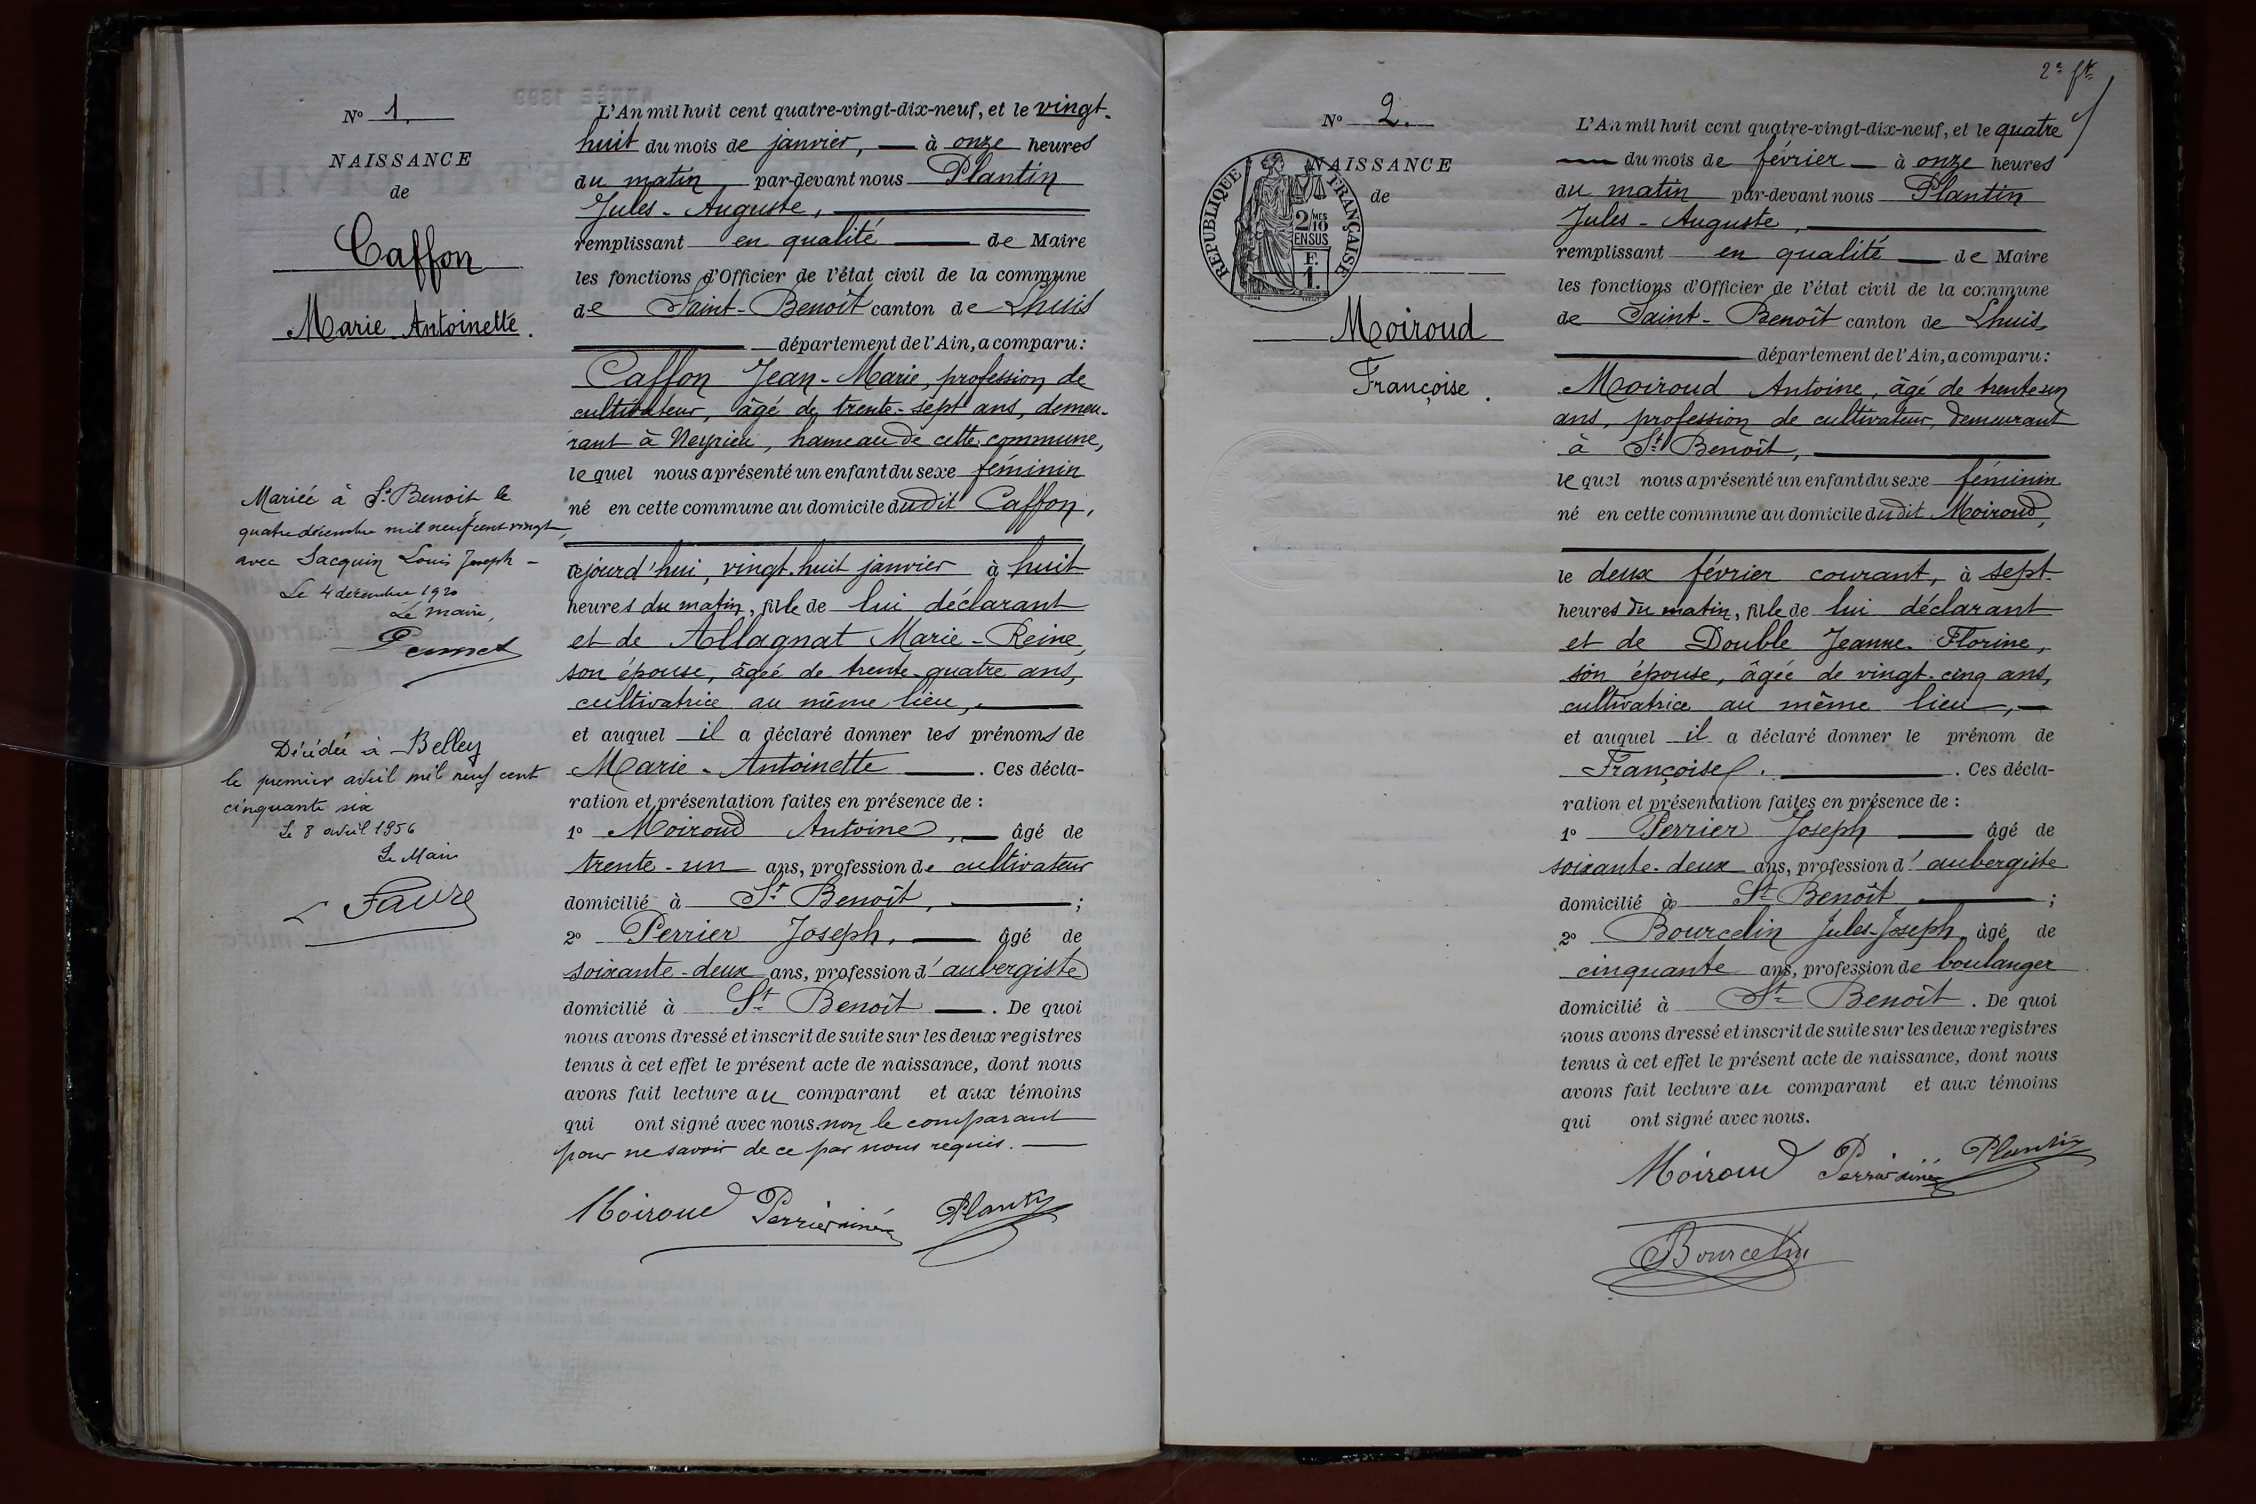 N° 1.
NAISSANCE
de
Caffon
Marie Antoinette.
Mariée à St Benoit le
quatre décembre mil neuf cent vingt,
avec Jacquin Louis Joseph -
Le 4 décembre 1920
Le Maire,
Décédée à Belley
le premier avril mil neuf cent
cinquante six
Le 8 avril 1956
Le Maire
Favre
L'An mil huit cent quatre-vingt-dix-neuf, et le vingt-
huit du mois de janvier, à onze heures
du matin par-devant nous Plantin
Jules-Auguste,
remplissant en qualité de Maire
les fonctions d'Officier de l'état civil de la commune
de Saint-Benoît canton de Lhuis
département de l'Ain, a comparu :
Caffon Jean-Marie, profession de
cultivateur, âgé de trente-sept ans, demeu-
rant à Neyrieu, hameau de cette commune,
lequel nous a présenté un enfant du sexe féminin
né en cette commune au domicile dudit Caffon,
cejourd'hui, vingt-huit janvier à huit
heures du matin, fille de lui déclarant
et de Allagnat Marie-Reine,
son épouse, âgée de trente-quatre ans,
cultivatrice au même lieu,
et auquel il a déclaré donner les prénoms de
Marie-Antoinette. Ces décla-
ration et présentation faites en présence de :
1° Moiroud Antoine, âgé de
trente-un ans, profession de cultivateur
domicilié à St Benoît, ;
2° Perrier Joseph, âgé de
soixante-deux ans, profession d'aubergiste
domicilié à St Benoît. De quoi
nous avons dressé et inscrit de suite sur les deux registres
tenus à cet effet le présent acte de naissance, dont nous
avons fait lecture au comparant et aux témoins
qui ont signé avec nous. non le comparant
pour ne savoir de ce par nous requis.
Moiroud Perrier ainé Plantin
2e ft
N° 2.
NAISSANCE
de
RÉPUBLIQUE FRANÇAISE
2/10 MES
EN SUS
F.
1.
Moiroud
Françoise.
L'An mil huit cent quatre-vingt-dix-neuf, et le quatre
du mois de février à onze heures
du matin par-devant nous Plantin
Jules-Auguste,
remplissant en qualité de Maire
les fonctions d'Officier de l'état civil de la commune
de Saint-Benoît canton de Lhuis,
département de l'Ain, a comparu :
Moiroud Antoine, âgé de trente un
ans, profession de cultivateur, demeurant
à St Benoît,
lequel nous a présenté un enfant du sexe féminin
né en cette commune au domicile dudit Moiroud,
le deux février courant, à sept
heures du matin, fille de lui déclarant
et de Double Jeanne-Florine,
son épouse, âgée de vingt-cinq ans,
cultivatrice au même lieu,
et auquel il a déclaré donner le prénom de
Françoise. Ces décla-
ration et présentation faites en présence de :
1° Perrier Joseph âgé de
soixante-deux ans, profession d'aubergiste
domicilié à St Benoît ;
2° Bourcelin Jules-Joseph, âgé de
cinquante ans, profession de boulanger
domicilié à St Benoît. De quoi
nous avons dressé et inscrit de suite sur les deux registres
tenus à cet effet le présent acte de naissance, dont nous
avons fait lecture au comparant et aux témoins
qui ont signé avec nous.
Moiroud Perrier ainé Plantin
Bourcelin